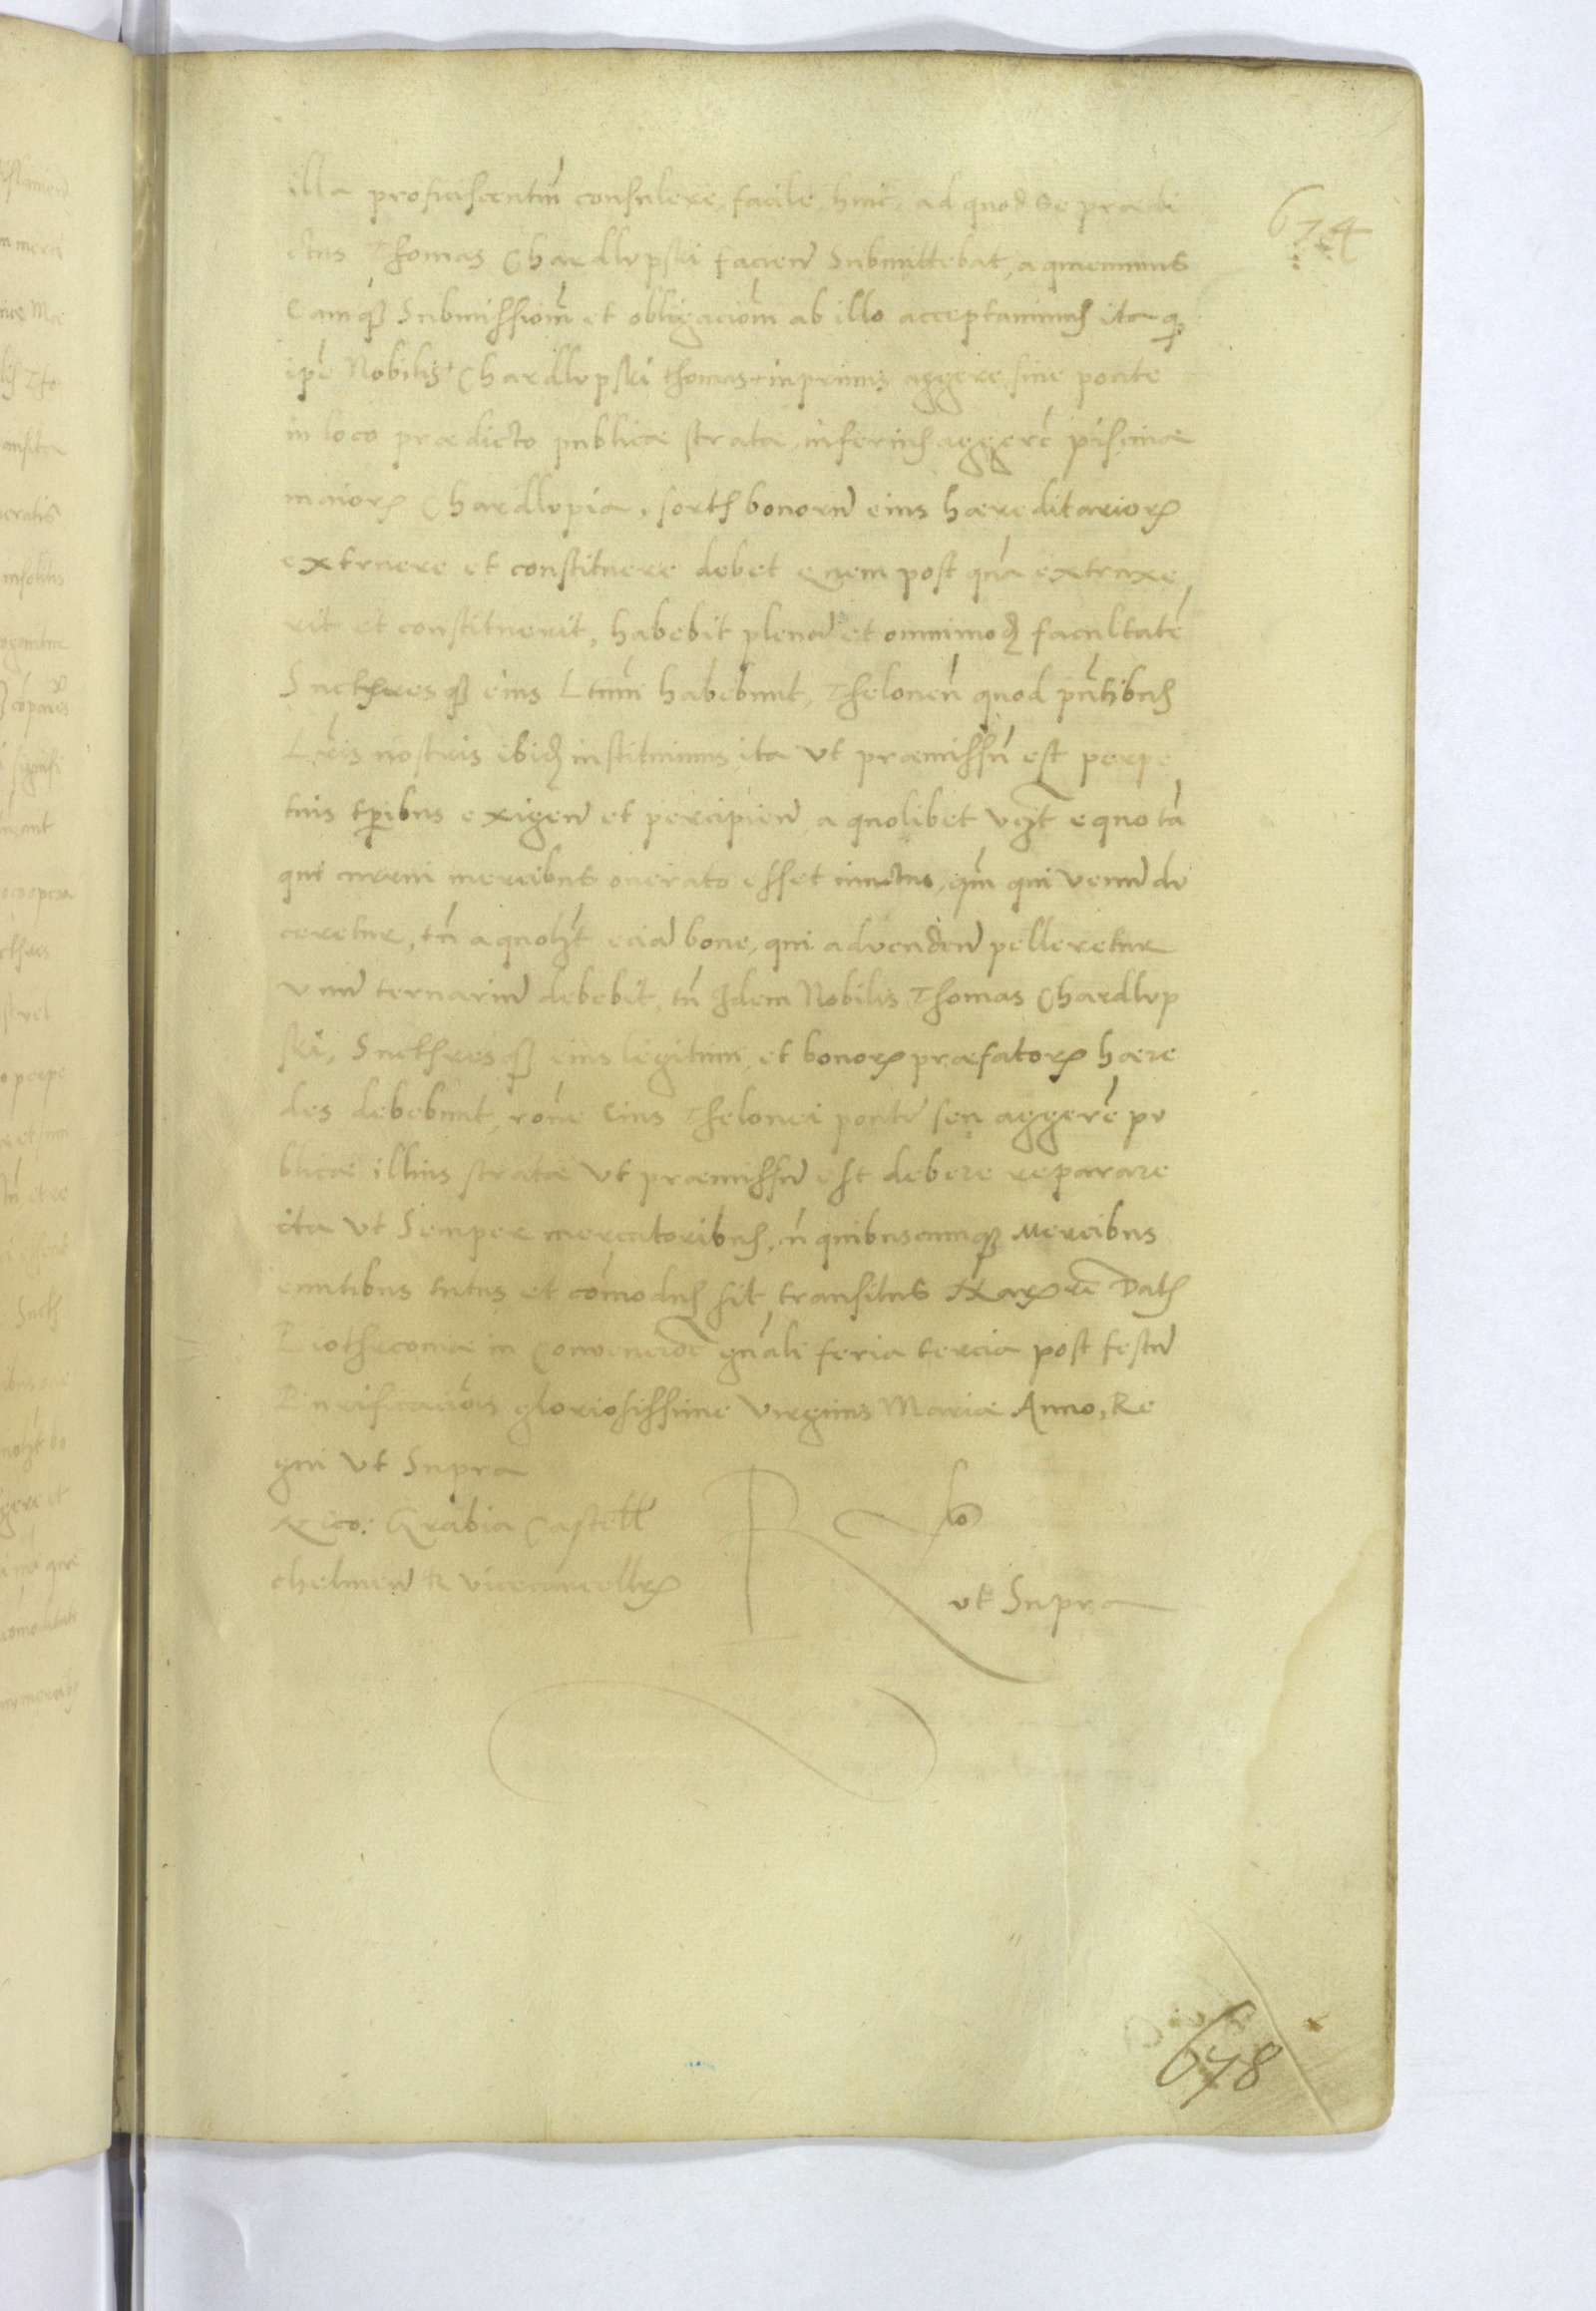 674
illa proficiscentiū consulere, facile, huic, ad quod se prædi
ctus Thomas Chardlvpski faciend Submittebat, aquievimus
Eamq3 Submissionē et obligacionē ab illo acceptavimus ita q
ipē Nobilis Chardlvpski Thomas inprimis aggerē sive pontē
in loco prædicto publicæ stratæ, inferius aggerē piscinæ
maioris Chardlvpia, sortis bonorū eius hæreditarior
extruere et constituere debet quem post quā extruxe
rit et constituerit, habebit plenā et omnimod facultatē
Sucthresq3 eius Ltimi habebunt, Thelonēū quod pñtibus
Lris nostris ibid instituimus ita vt præmissū est perpe
tuis tpribus exigend et percipiend a quolibet vcz equo tā
qui currui mercibus onerato esset iunctus, qm qui venū du
ceretur, tū a quolzt eciā bove, qui ad vendend pelleretur
vnū ternariū debebit, tū Idem Nobilis Thomas Chardlvp
ski, Sucthresq3 eius legitimi, et bonor præfator hære
des debebunt, rōne Eius Thelonei pontē seu aggerē pv
blicæ illius stratæ vt præmissū est debere reparare
ita vt Semper mercatoribus, ū quibuscumq3 Mercibus
euntibus tutus et cōmodus sit transitus Harr tē Dat
Piothrcoviæ in Convencōē gñali feria tercia post festū
Purificaciōis gloriosissime virginis Mariæ Anno, Re
gni vt Supra
Grabia Castell
chelmen R vicecancellr
R
vt Supra
678